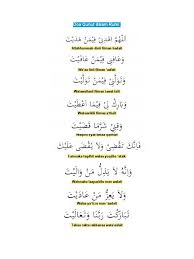 Doa Qunut dalam Rumi
اللَّهُمَّ اهْدِنِي فِيمَنْ هَدَيْتَ
Allahhummah dinii fiiman hadait
وَعَافِنِي فِيمَنْ عَافَيْتَ
Wa'aa finii fiiman 'aafait
وَتَوَلَّنِي فِيمَنْ تَوَلَّيْتَ
Watawallanii fiiman tawal lait
وَبَارِكْ لِي فِيمَا أَعْطَيْتَ
Wabaariklii fiima a'thait
وَقِنِي شَرَّمَا قَضَيْتَ
Waqinii syarramaa qadhait
فَإِنَّكَ تَقْضِي وَلَا يُقْضَى عَلَيْكَ
Fainnaka taqdhii walaa yuqdha 'alaik
وَإِنَّهُ لَا يَذِلُّ مَنْ وَالَيْتَ
Wainnahu laayadzillu man walait
وَلَا يَعِزُّ مَنْ عَادَيْتَ
Walaa ya'izzu man 'aadait
تَبَارَكْتَ رَبَّنَا وَتَعَالَيْتَ
Tabaa rakta rabbanaa wata'aalait